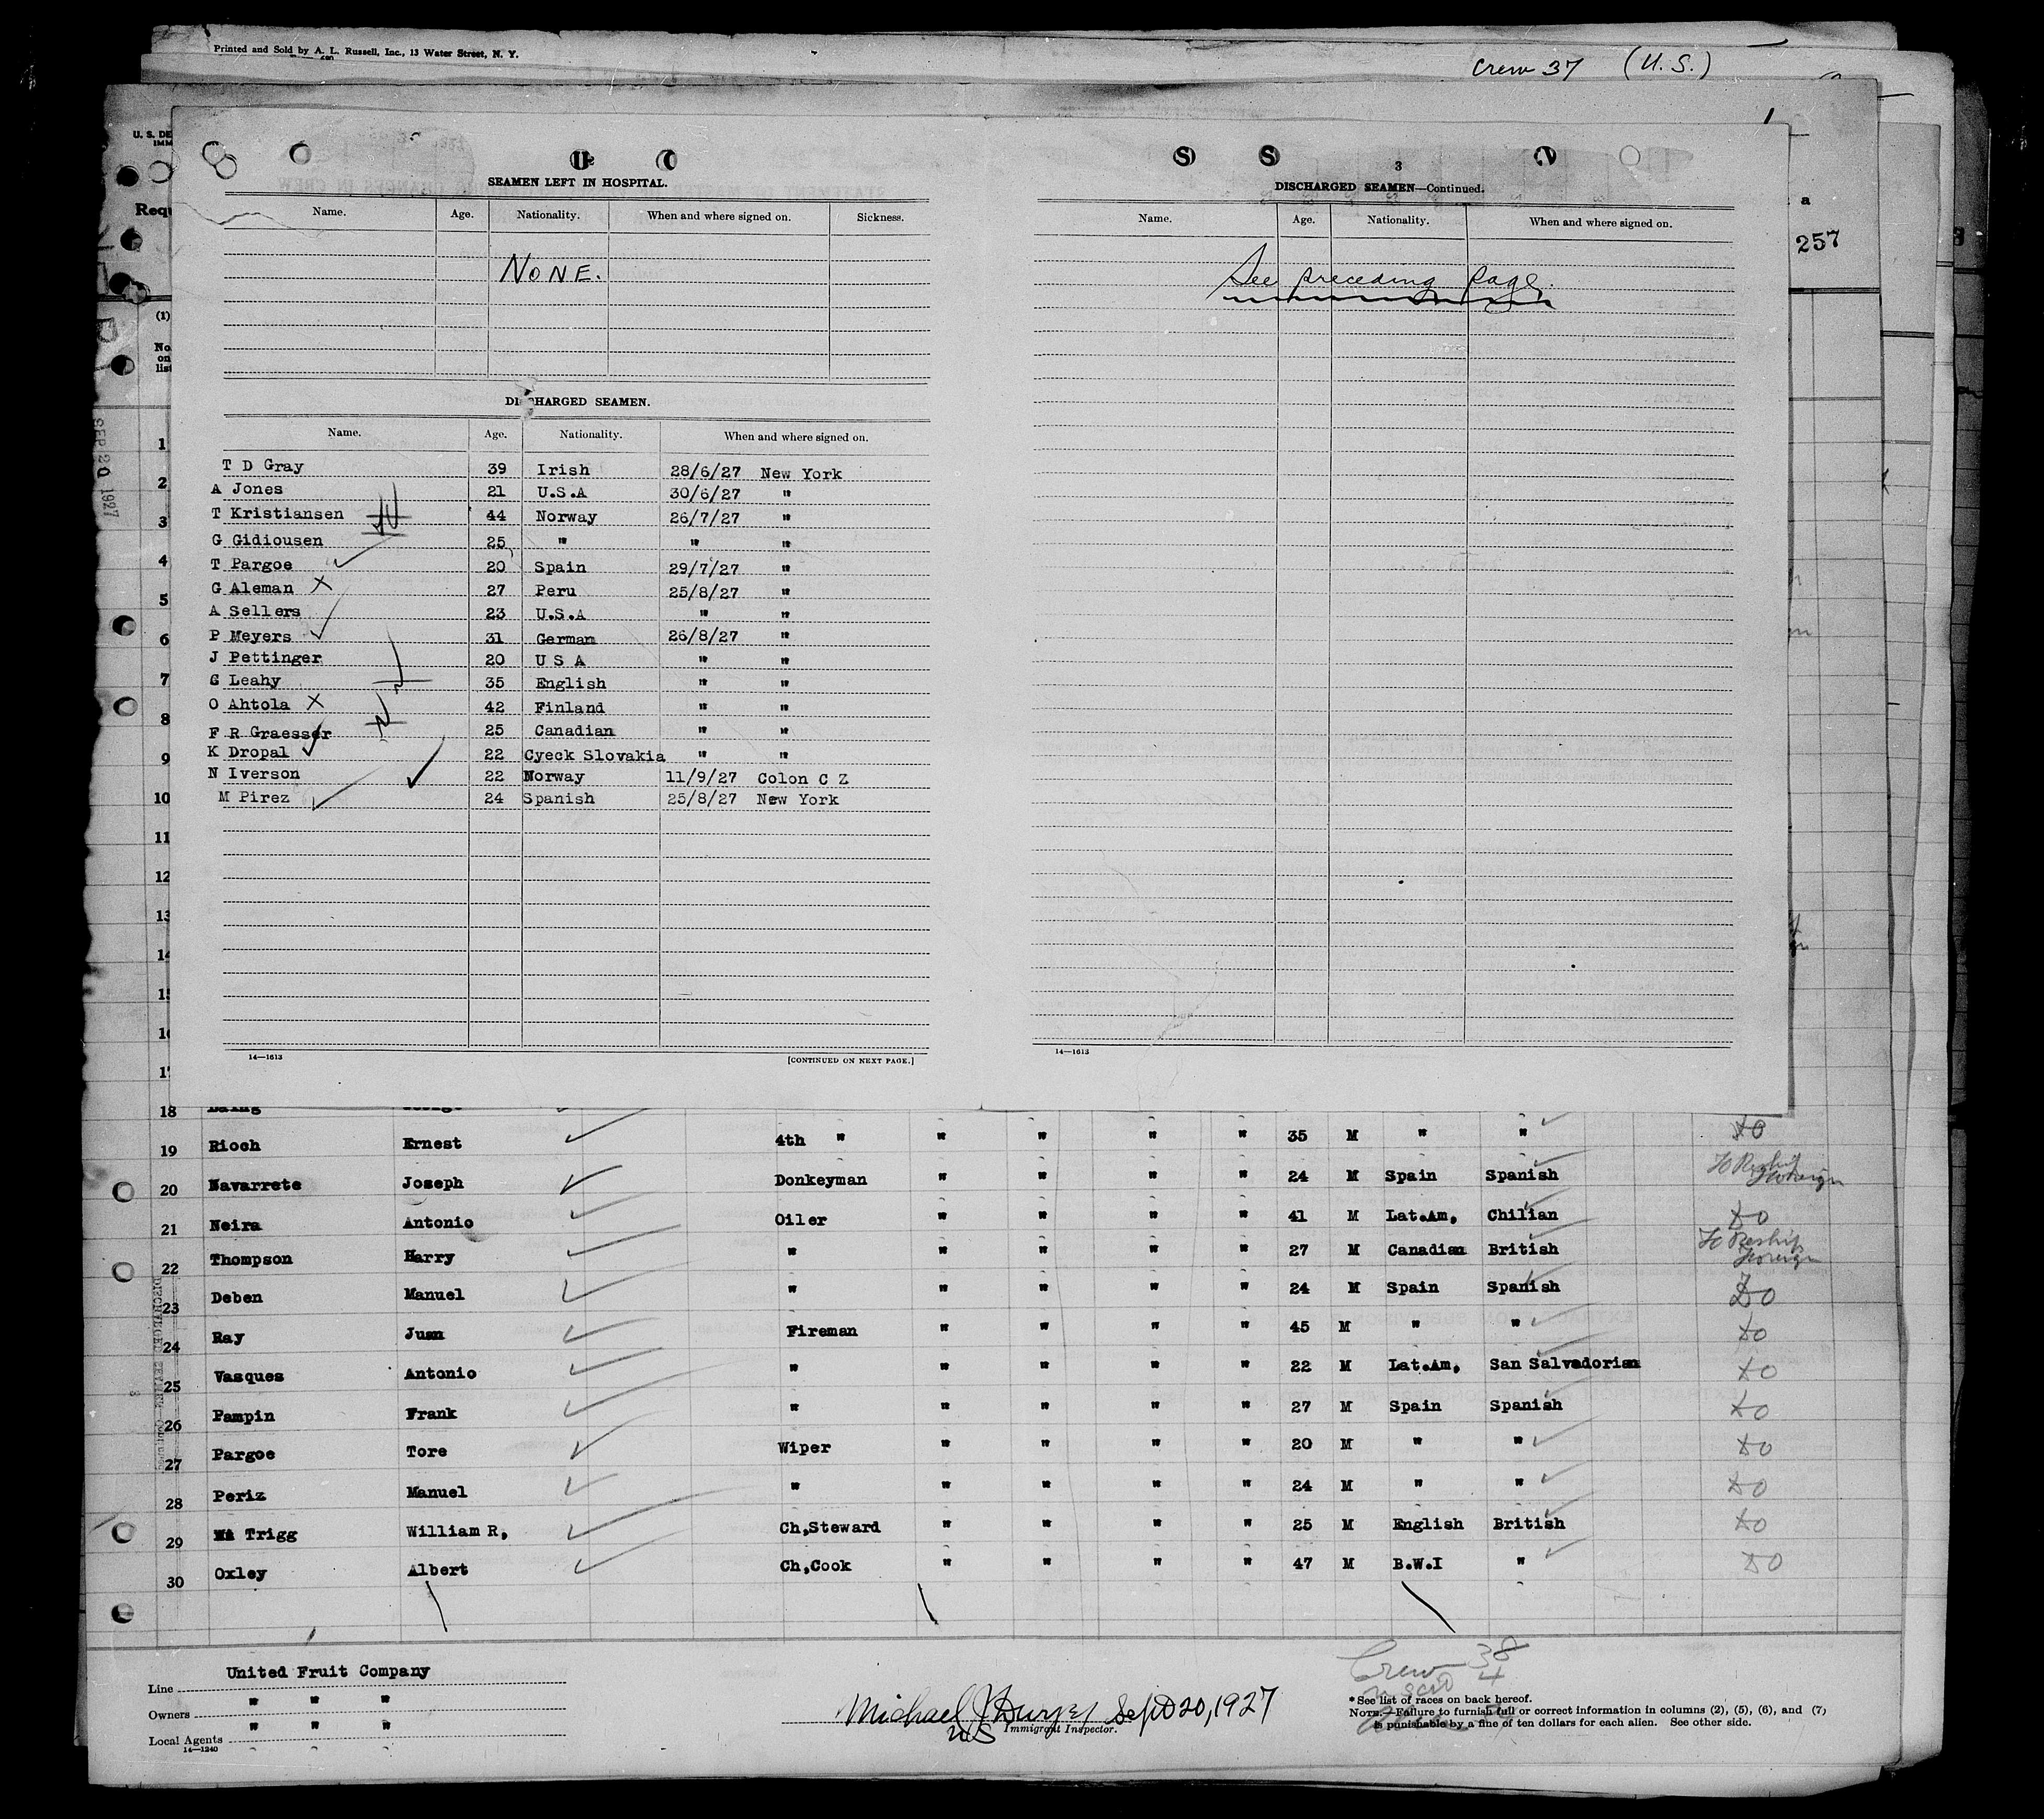 Printed and Sold by A. L. Russell, Inc., 13 Water Street, N. Y.
Crew 37 (U. S.)
U. S. DE
IMM
Requ
a
257
(1)
No.
on
list
SEP 20 1927
2
SEAMEN LEFT IN HOSPITAL.
Name. Age. Nationality. When and where signed on. Sickness.
NONE.
DISCHARGED SEAMEN.
Name. Age. Nationality. When and where signed on.
T D Gray 39 Irish 28/6/27 New York
A Jones 21 U.S.A 30/6/27 "
T Kristiansen 44 Norway 26/7/27 "
G Gidiousen 25 " " "
T Pargoe 20 Spain 29/7/27 "
G Aleman X 27 Peru 25/8/27 "
A Sellers 23 U.S.A " "
P Meyers 31 German 26/8/27 "
J Pettinger 20 U S A " "
G Leahy 35 English " "
O Ahtola X 42 Finland " "
F R Graesser 25 Canadian " "
K Dropal 22 Cyeck Slovakia " "
N Iverson 22 Norway 11/9/27 Colon C Z
M Pirez 24 Spanish 25/8/27 New York
14—1613 [CONTINUED ON NEXT PAGE.]
3
DISCHARGED SEAMEN—Continued.
Name. Age. Nationality. When and where signed on.
See preceding page.
14—1613
1
2
3
4
5
6
7
8
9
10
11
12
13
14
18
19 Rioch Ernest 4th " " " " " 35 M " "
20 Navarrete Joseph Donkeyman " " " " 24 M Spain Spanish To Reship Foreign
21 Neira Antonio Oiler " " " " 41 M Lat.Am, Chilian Do
22 Thompson Harry " " " " " 27 M Canadian British To Reship Foreign
23 Deben Manuel " " " " " 24 M Spain Spanish Do
24 Ray Juan Fireman " " " " 45 M " " Do
25 Vasques Antonio " " " " " 22 M Lat.Am, San Salvadorian Do
26 Pampin Frank " " " " " 27 M Spain Spanish Do
27 Pargoe Tore Wiper " " " " 20 M " " Do
28 Periz Manuel " " " " " 24 M " " Do
29 Trigg William R, Ch,Steward " " " " 25 M English British Do
30 Oxley Albert Ch,Cook " " " " 47 M B.W.I " Do
Line United Fruit Company
Owners " " "
Local Agents " " "
14—1240
Michael J Dwyer Sept 20, 1927
Immigrant Inspector.
Crew 38
* See list of races on back hereof.
NOTE.—Failure to furnish full or correct information in columns (2), (5), (6), and (7),
is punishable by a fine of ten dollars for each alien. See other side.